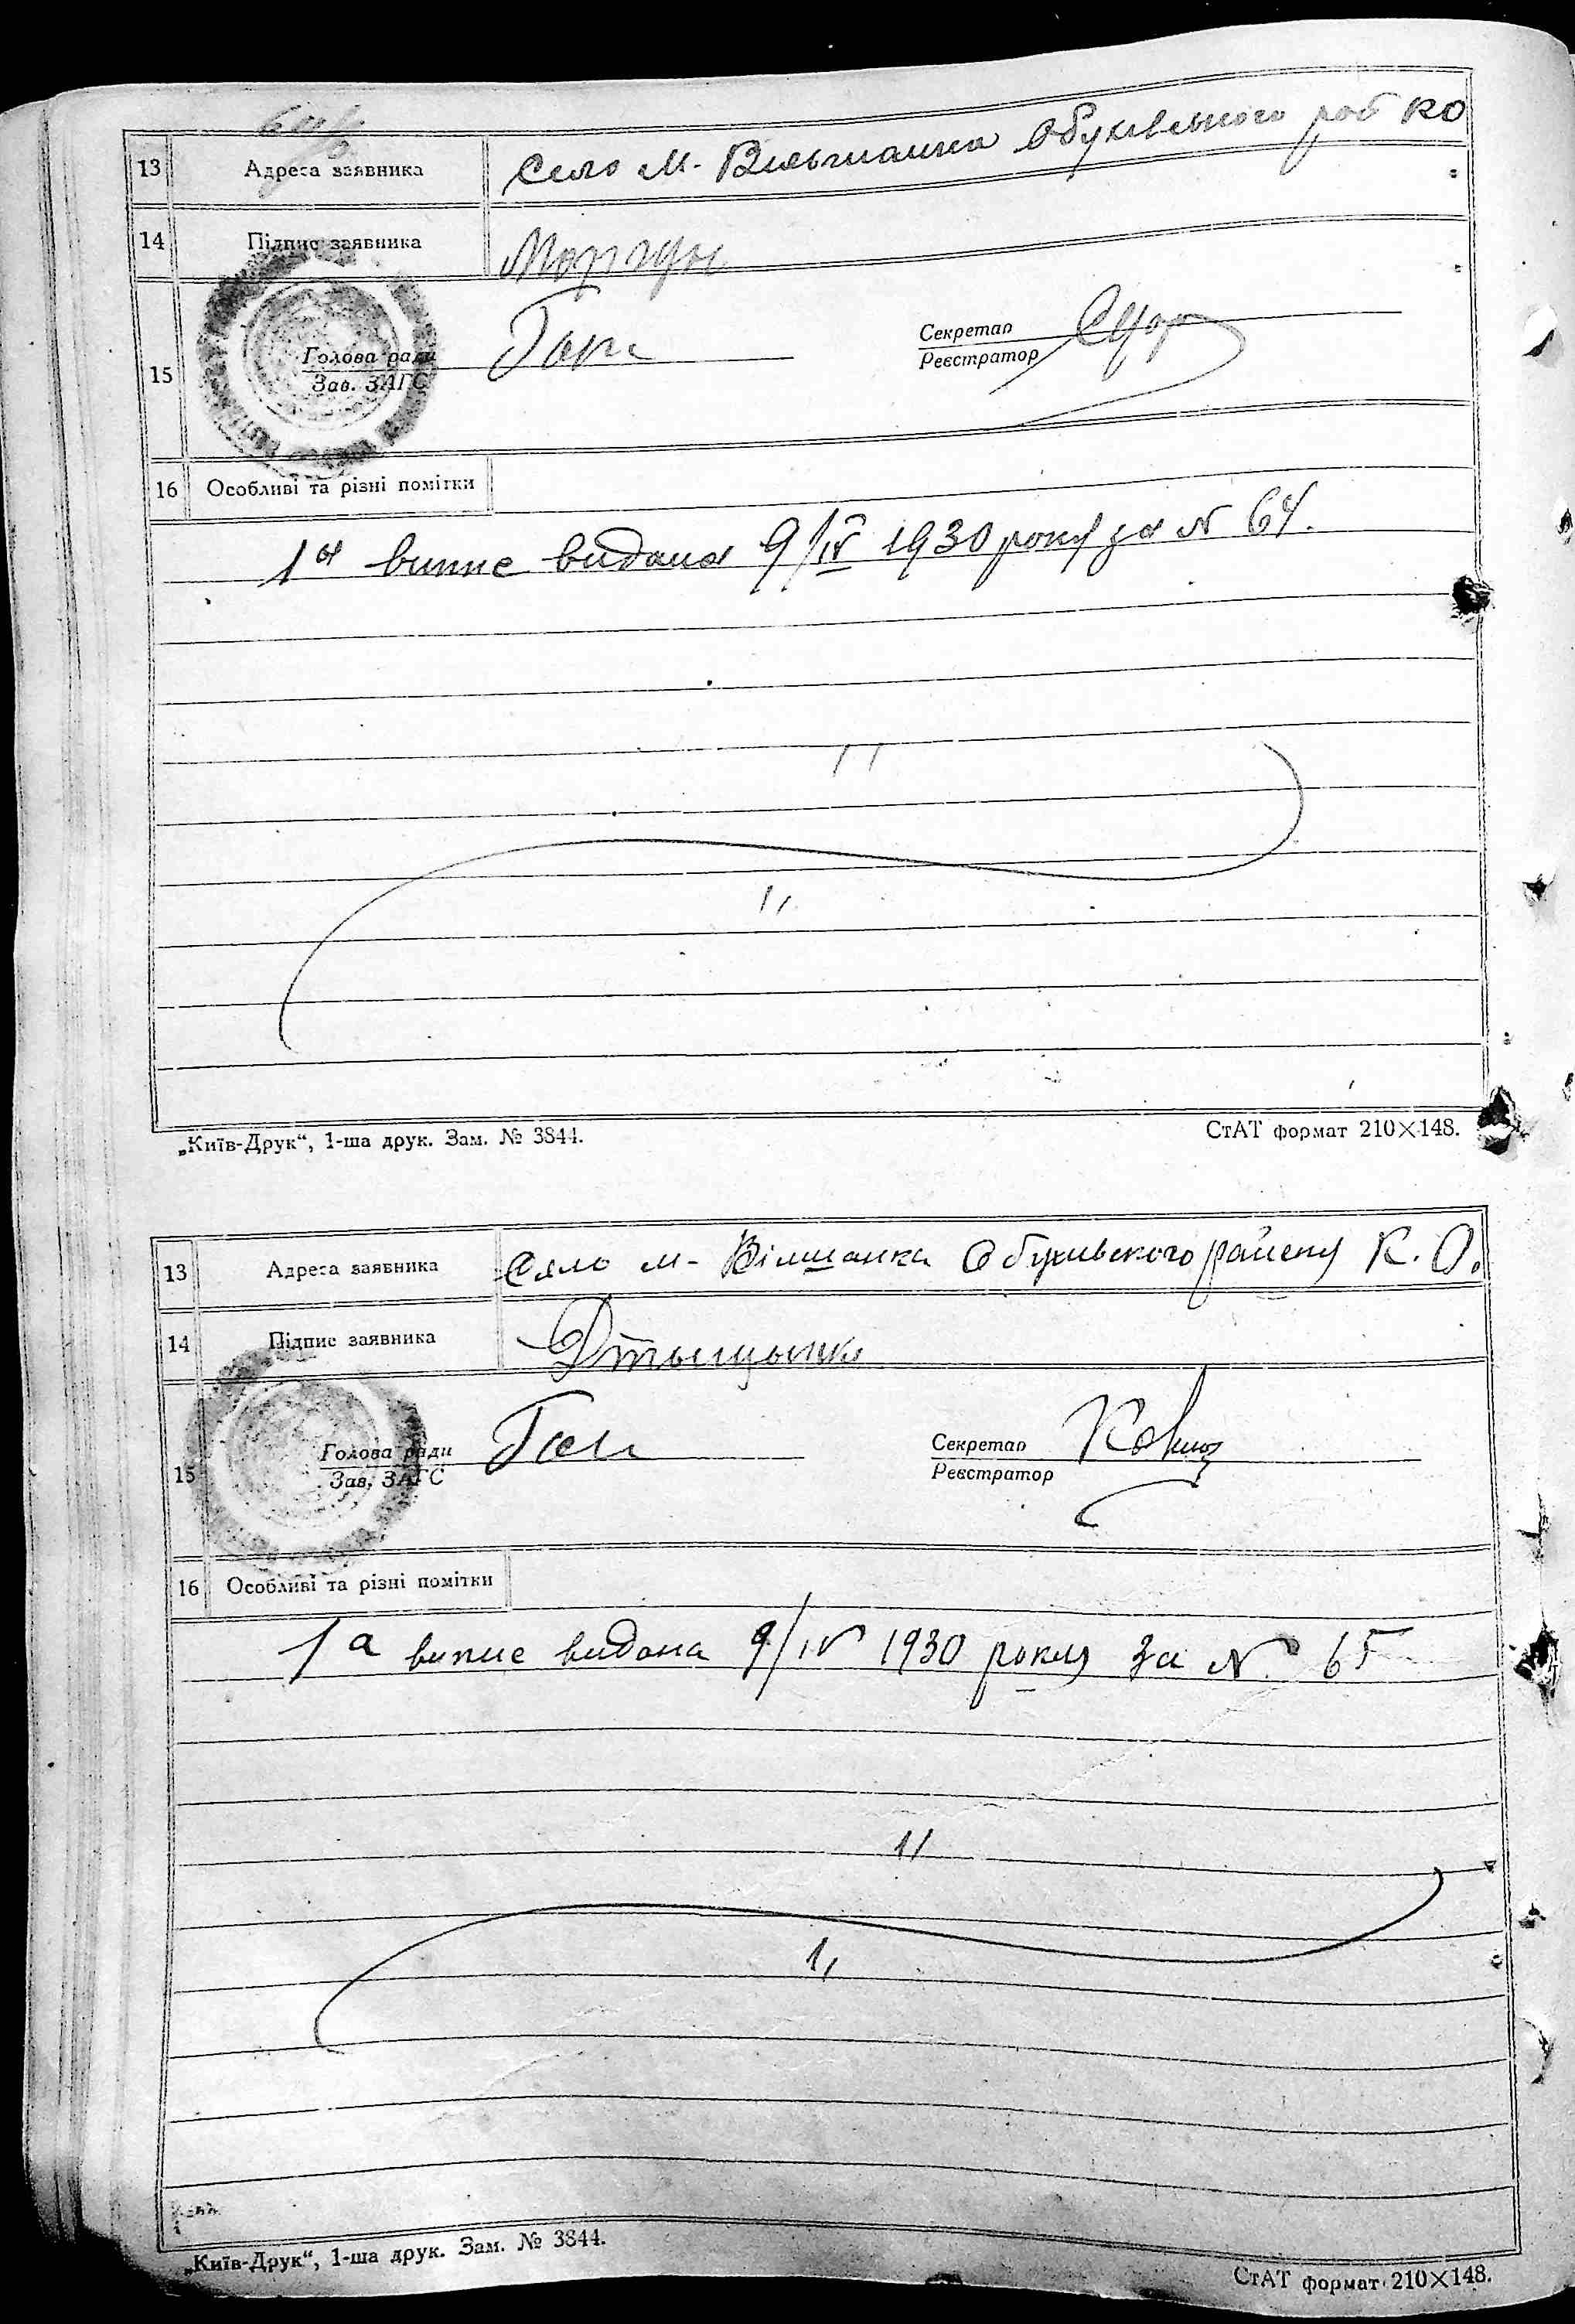 13 Адреса заявника Село м. Вильшанка Обухівського КО
14 Підпис заявника
15 Голова ради Секретар
Зав. ЗАГС Реєстратор
16 Особливі та різні помітки
1а випис видана 9/IV 1930 року за № 64.
„Київ-Друк“, 1-ша друк. Зам. № 3844. СтАТ формат 210×148.
13 Адреса заявника Село м- Вілшанка Обухивского району К. О.
14 Підпис заявника
15 Голова ради Секретар
Зав. ЗАГС Реєстратор
16 Особливі та різні помітки
1а випис видана 9/IV 1930 року за №. 65
„Київ-Друк“, 1-ша друк. Зам. № 3844.
СтАТ формат 210×148.